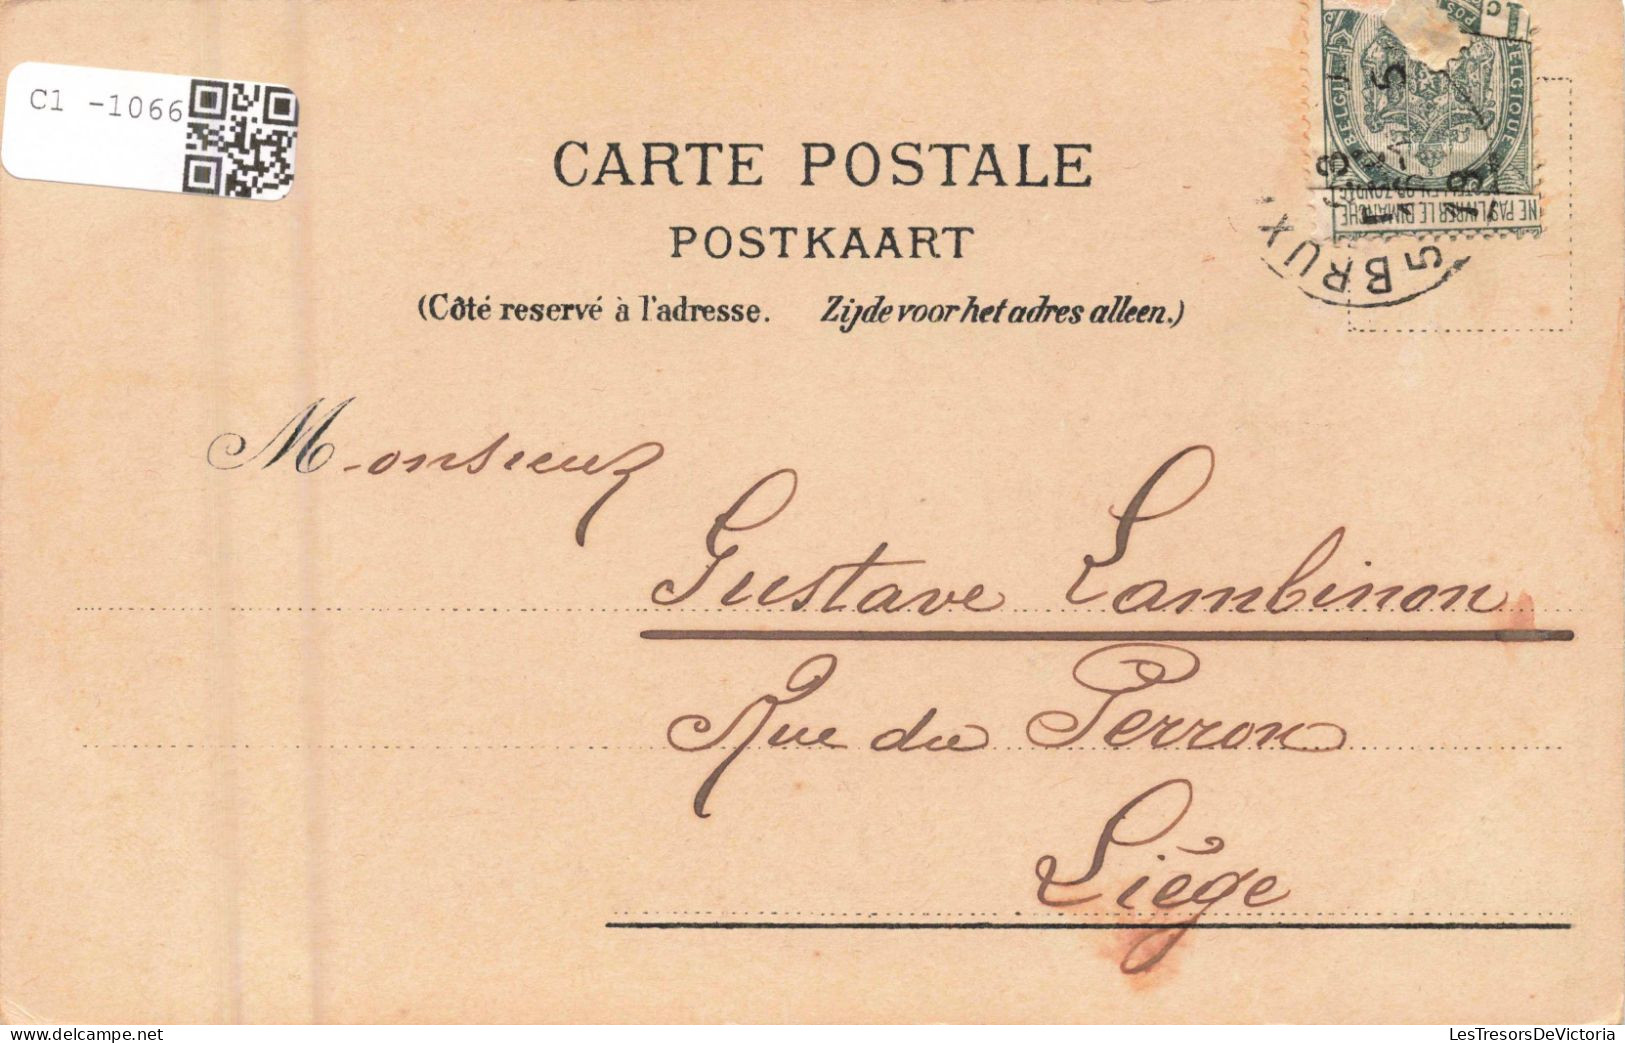 C1 -1066
CARTE POSTALE
POSTKAART
(Côté reservé à l'adresse. Zijde voor het adres alleen.)
BELGIQUE
NE PAS LIVRER LE DIMANCHE
5 BRUX
Monsieur
Gustave Lambinon
Rue du Perron
Liége
LesTresorsDeVictoria